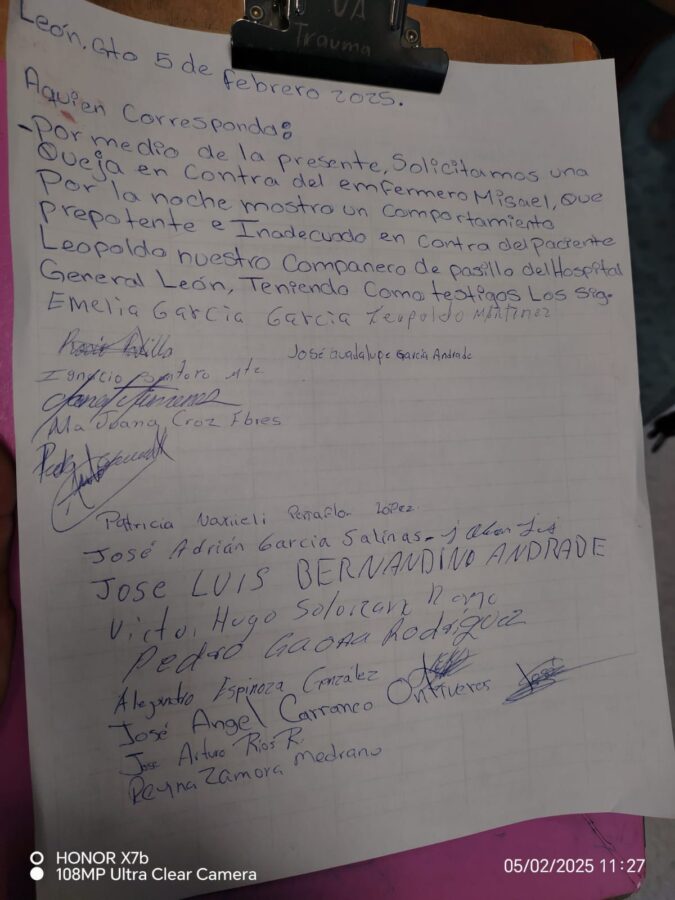 UA
Trauma
León, Gto 5 de Febrero 2025.
Aquien Corresponda:
-Por medio de la presente, Solicitamos una
Queja en contra del emfermero Misael, que
Por la noche mostro un comportamiento
prepotente e Inadecuado en contra del paciente
Leopoldo nuestro Compañero de pasillo del Hospital
General León, Teniendo Como testigos Los sig.
Emelia Garcia Garcia Leopoldo Martinez
José Guadalupe García Andrade
Ignacio
Ma Juana Croz
Patricia López
José Adrián Garcia Salinas
JOSE LUIS BERNANDINO ANDRADE
Victor Hugo
Pedro Gaona Rodríguez
Alejandro Espinoza González
José Angel Carranco Ontiveros José
Jose Arturo Rios R.
Reyna Zamora Medrano
HONOR X7b
108MP Ultra Clear Camera
05/02/2025 11:27